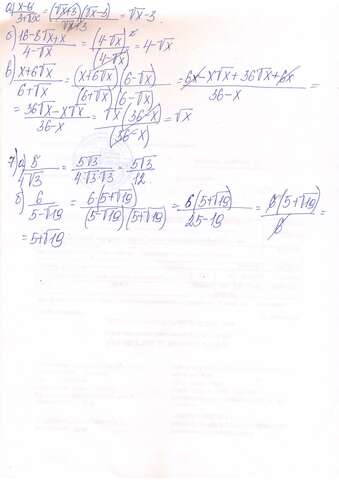 а) x-9/3+√x = (√x+3)(√x-3)/√x+3 = √x-3.
б) 16-8√x+x/4-√x = (4-√x)²/(4-√x) = 4-√x
в) x+6√x/6+√x = (x+6√x)(6-√x)/(6+√x)(6-√x) = 6x-x√x+36√x-6x/36-x =
= 36√x-x√x/36-x = √x(36-x)/(36-x) = √x
7) а) 5/4√3 = 5√3/4·√3·√3 = 5√3/12.
б) 6/5-√19 = 6(5+√19)/(5-√19)(5+√19) = 6(5+√19)/25-19 = 6(5+√19)/6 =
= 5+√19